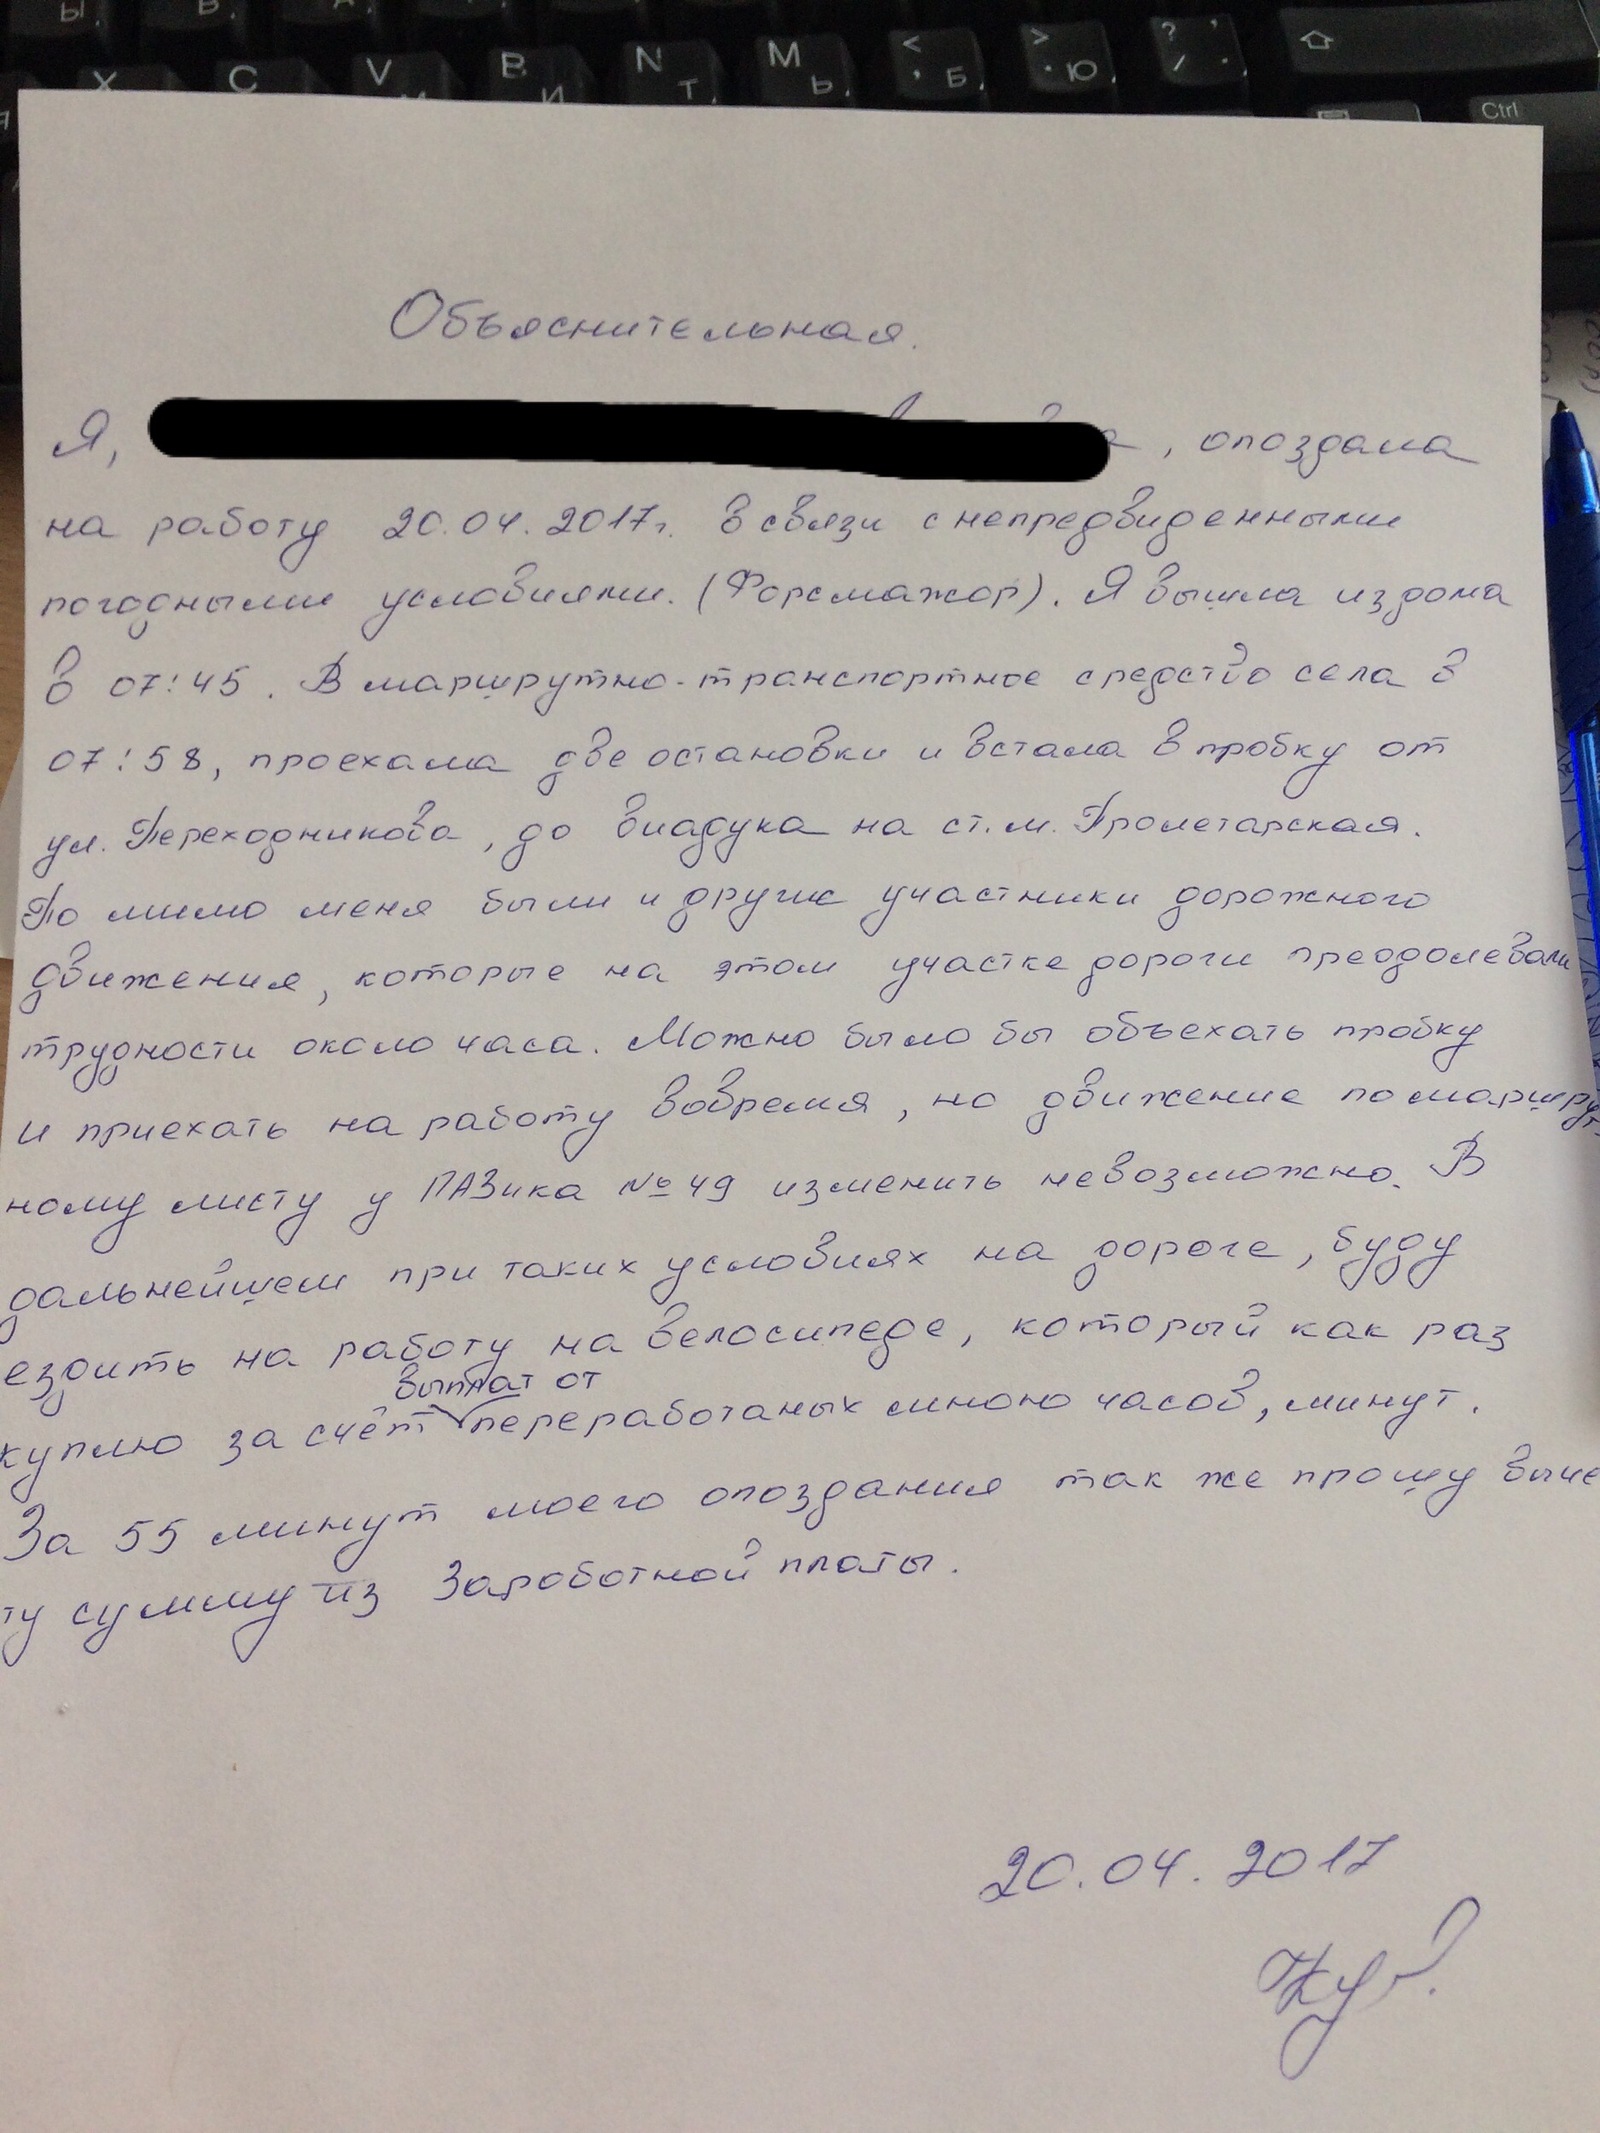 Ы В
X C V B И N Т М Ь < , Б > . Ю ? / , .
Ctrl
Объяснительная.
Я, , опоздала
на работу 20.04.2017г. в связи с непредвиденными
погодными условиями. (Форсмажор). Я вышла из дома
в 07:45. В маршрутно-транспортное средство села в
07:58, проехала две остановки и встала в пробку от
ул. Переходникова, до виадука на ст.м. Пролетарская.
По мимо меня были и другие участники дорожного
движения, которые на этом участке дороги преодолевали
трудности около часа. Можно было бы объехать пробку
и приехать на работу вовремя, но движение по маршрут-
ному листу у ПАЗика № 49 изменить невозможно. В
дальнейшем при таких условиях на дороге, буду
ездить на работу на велосипеде, который как раз
выплат от
куплю за счёт переработаных мною часов, минут.
За 55 минут моего опоздания так же прошу выче
ту сумму из Зароботной платы.
20.04.2017